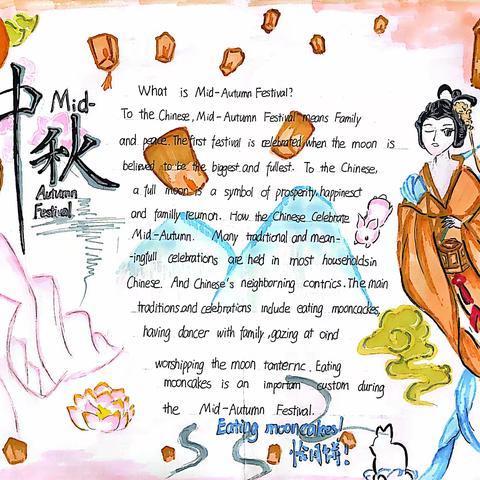 中秋
Mid-
Autumn
Festival
What is Mid-Autumn Festival?
To the Chinese, Mid-Autumn Festival means Family
and peace. The first festival is celebrated when the moon is
believed to be the biggest and fullest. To the Chinese,
a full moon is a symbol of prosperity, happinesct
and familly reumon. How the Chinese Celebrate
Mid-Autumn. Many tradrtional and mean-
-ingfull celebrations are held in most householdsin
Chinese. And Chinese's neighborning contrics. The main
traditions and celebrations include eating mooncackes
having dancer with family, gazing at oind
worshipping the moon tanternc. Eating
mooncakes is an importan custom during
the Mid-Autumn Festival.
Eating mooncakes!
吃月饼!